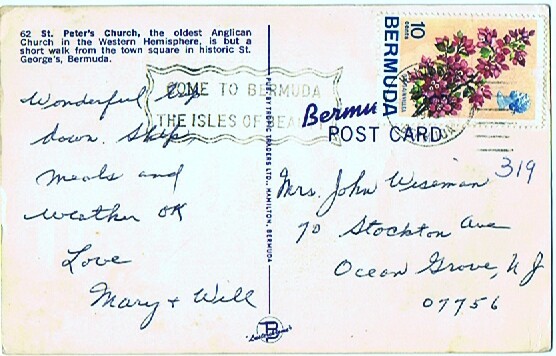 62 St. Peter's Church, the oldest Anglican
Church in the Western Hemisphere, is but a
short walk from the town square in historic St.
George's, Bermuda.
COME TO BERMUDA
THE ISLES OF
10
BERMUDA
Bermu
POST CARD
TRADERS LTD., HAMILTON, BERMUDA
Wonderful trip
down. Ship,
meals and
weather OK
Love
Mary + Will
319
Mrs. John Wiseman
70 Stockton Ave
Ocean Grove, N J
07756